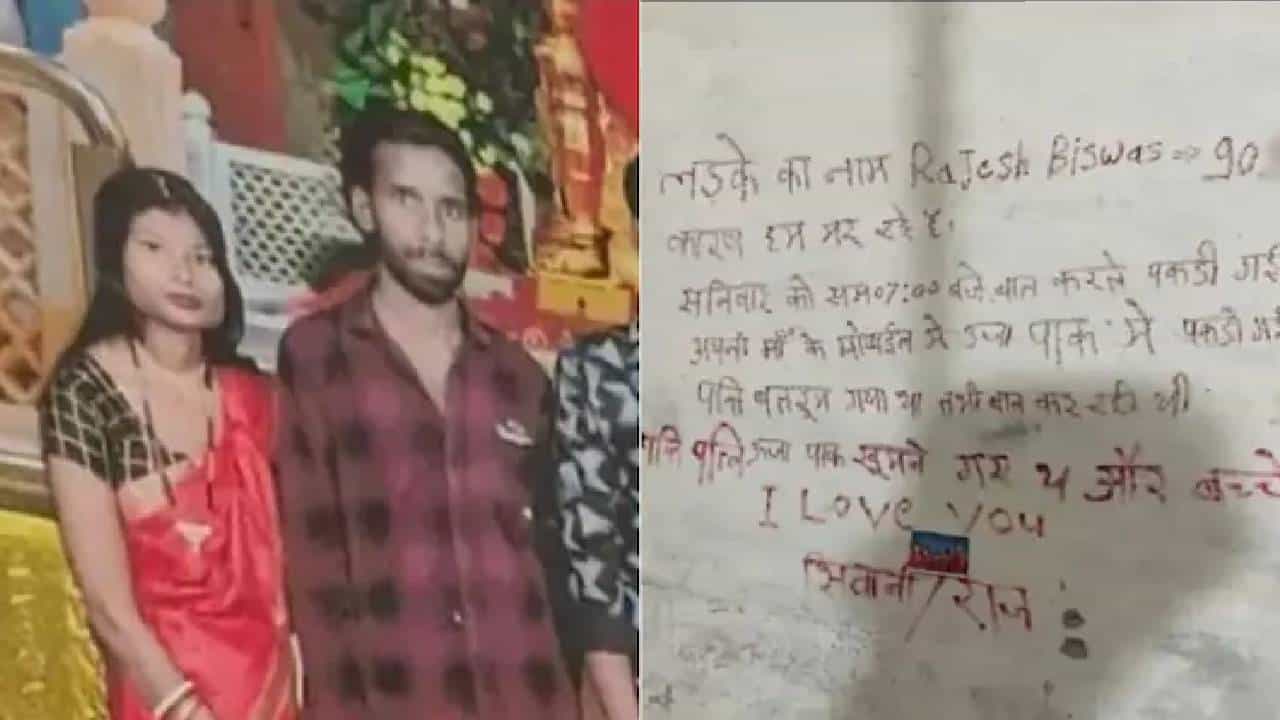 लड़के का नाम Rajesh Biswas => 90
कारण हम मर रहे है।
सनिवार को सम 07:00 बजे बात करते पकडी गई
अपनी माँ के मोबाईल से ऊर्जा पाक में पकडी गई
पति बतरूम गया था तभी बात कर रही थी
पति पत्नि ऊर्जा पाक घूमने गए थे और बच्चे
I Love You
शिवानी/राज